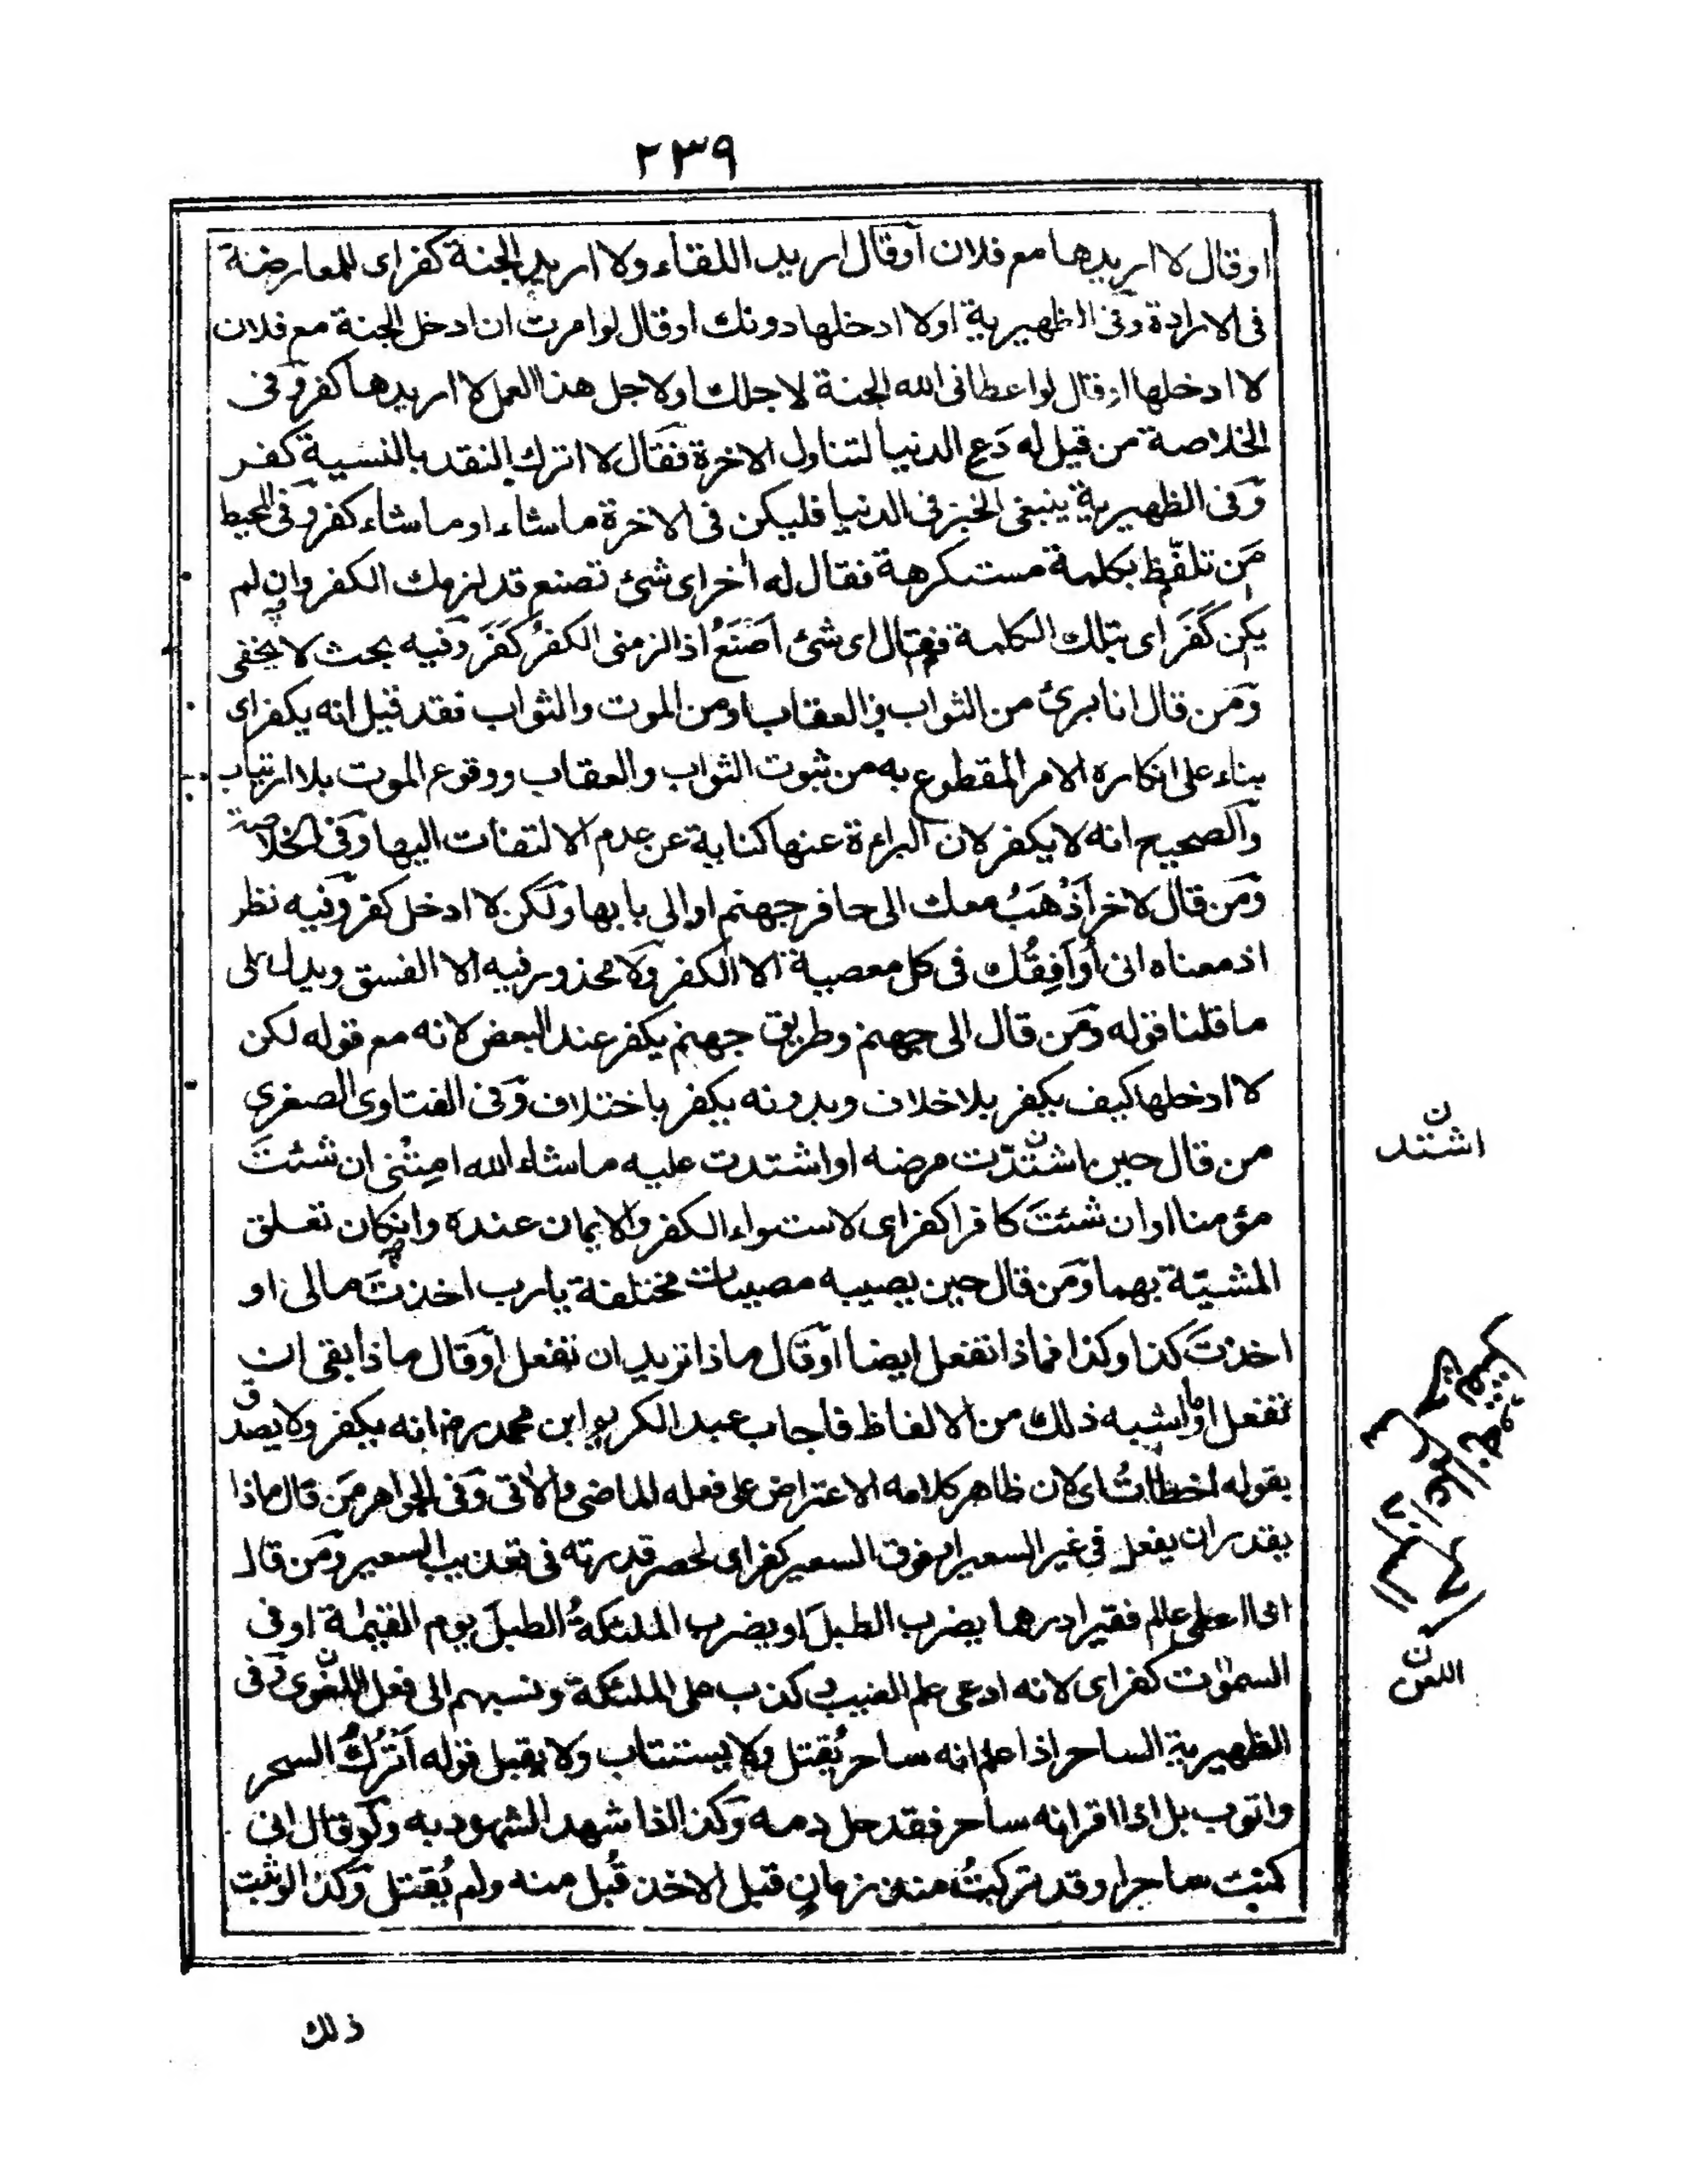 ٢٣٩
اوقال لا اريدها مع فلان أوقال اريد اللقاء ولا اريد الجنة كفر اى للمعارضة
فى الارادة وفى الظهيرية اولا ادخلها دونك اوقال لو امرت ان ادخل الجنة مع فلان
لا ادخلها اوقال لو اعطانى الله الجنة لاجلك اولاجل هذا العمل لا اريدها كفر وفى
الخلاصة من قيل له دَعِ الدنيا لتناول الاخرة فقال لا اترك النقد بالنسية كفر
وفى الظهيرية ينبغى الخبز فى الدنيا فليكن فى الاخرة ماشاء او ماشاء كفر وفى المحيط
مَن تلفّظ بكلمة مستكرهة فقال له اخر اى شئ تصنع قد لزمك الكفر وان لم
يكن كَفَر اى بتلك الكلمة فقال اى شئ اَصْنَعُ اذا لزمنى الكفرُ كَفَرَ وفيه بحث لا يخفى
ومَن قال انا برئ من الثواب والعقاب اومن الموت والثواب فقد قيل انه يكفر اى
بناء على انكاره الامر المقطوع به من ثبوت الثواب والعقاب ووقوع الموت بلا ارتياب
والصحيح انه لا يكفر لان البراءة عنها كناية عن عدم الالتفات اليها وفى الخلاصة
ومَن قال لاخر اَذْهَبُ معك الى حافر جهنم اوالى بابها ولكن لا ادخل كفر وفيه نظر
اذ معناه انى اُوَافِقُك فى كل معصية الا الكفر ولا محذور فيه الا الفسق ويدل على
ماقلنا قوله ومَن قال الى جهنم وطريق جهنم يكفر عند البعض لانه مع قوله لكن
لا ادخلها كيف يكفر بلا خلاف وبدونه يكفر باختلاف وفى الفتاوى الصغرى
من قال حين اشتدّت مرضه اواشتدت عليه ماشاء الله امِتْنى ان شئتَ
مؤمنا اوان شئتَ كافرا كفر اى لاستواء الكفر والايمان عنده وان كان تعلق
المشيّة بهما ومَن قال حين يصيبه مصيبات مختلفة يارب اخذتَ مالى او
اخذتَ كذا وكذا فماذا تفعل ايضا اوقال ماذا تريد ان تفعل اوقال ماذا بقى ان
تفعل اوما اشبه ذلك من الالفاظ فاجاب عبد الكريم ابن محمد رض انه يكفر ولا يصدق
بقوله اخطأتُ اى لان ظاهر كلامه الاعتراض على فعله الماضى والآتى وفى الجواهر مَن قال ماذا
يقدر ان يفعل فى غير السعير او فوق السعير كفر اى لحصر قدرته فى تعذيب السعير ومَن قال
اذا اعطى عالم فقيرا درهما يضرب الطبلَ او يضرب الملئكةُ الطبلَ يوم القيمة اوفى
السموات كفر اى لانه ادعى علم الغيب وكذب على الملئكة ونسبهم الى فعل اللغوى وفى
الظهيرية الساحر اذا علم انه ساحر يُقتل ولا يستتاب ولا يقبل قوله اَتْرُكُ السحر
واتوب بل اذا اقر انه ساحر فقد حل دمه وكذا اذا شهد الشهود به ولو قال انى
كنت ساحرا وقد تركتُ منذ زمانٍ قبل الاخذ قُبل منه ولم يُقتل وكذا لو ثبت
ذلك
ن
اشتد
ن
اللغو